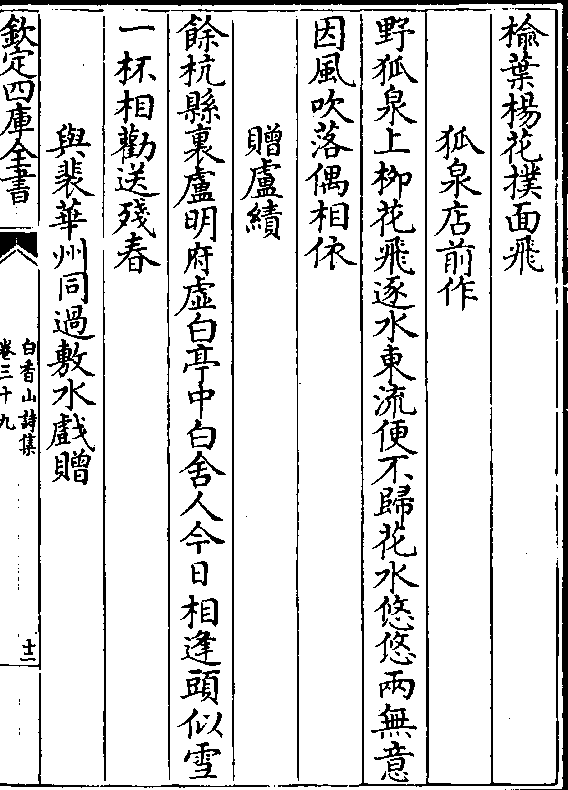 榆葉楊花撲面飛
狐泉店前作
野狐泉上栁花飛逐水東流便不歸花水悠悠兩無意
因風吹落偶相依
贈盧績
餘杭縣裏盧明府虚白亭中白舍人今日相逢頭似雪
一杯相勸送殘春
與裴華州同過敷水戲贈
欽定四庫全書
白香山詩集
卷三十九
十二